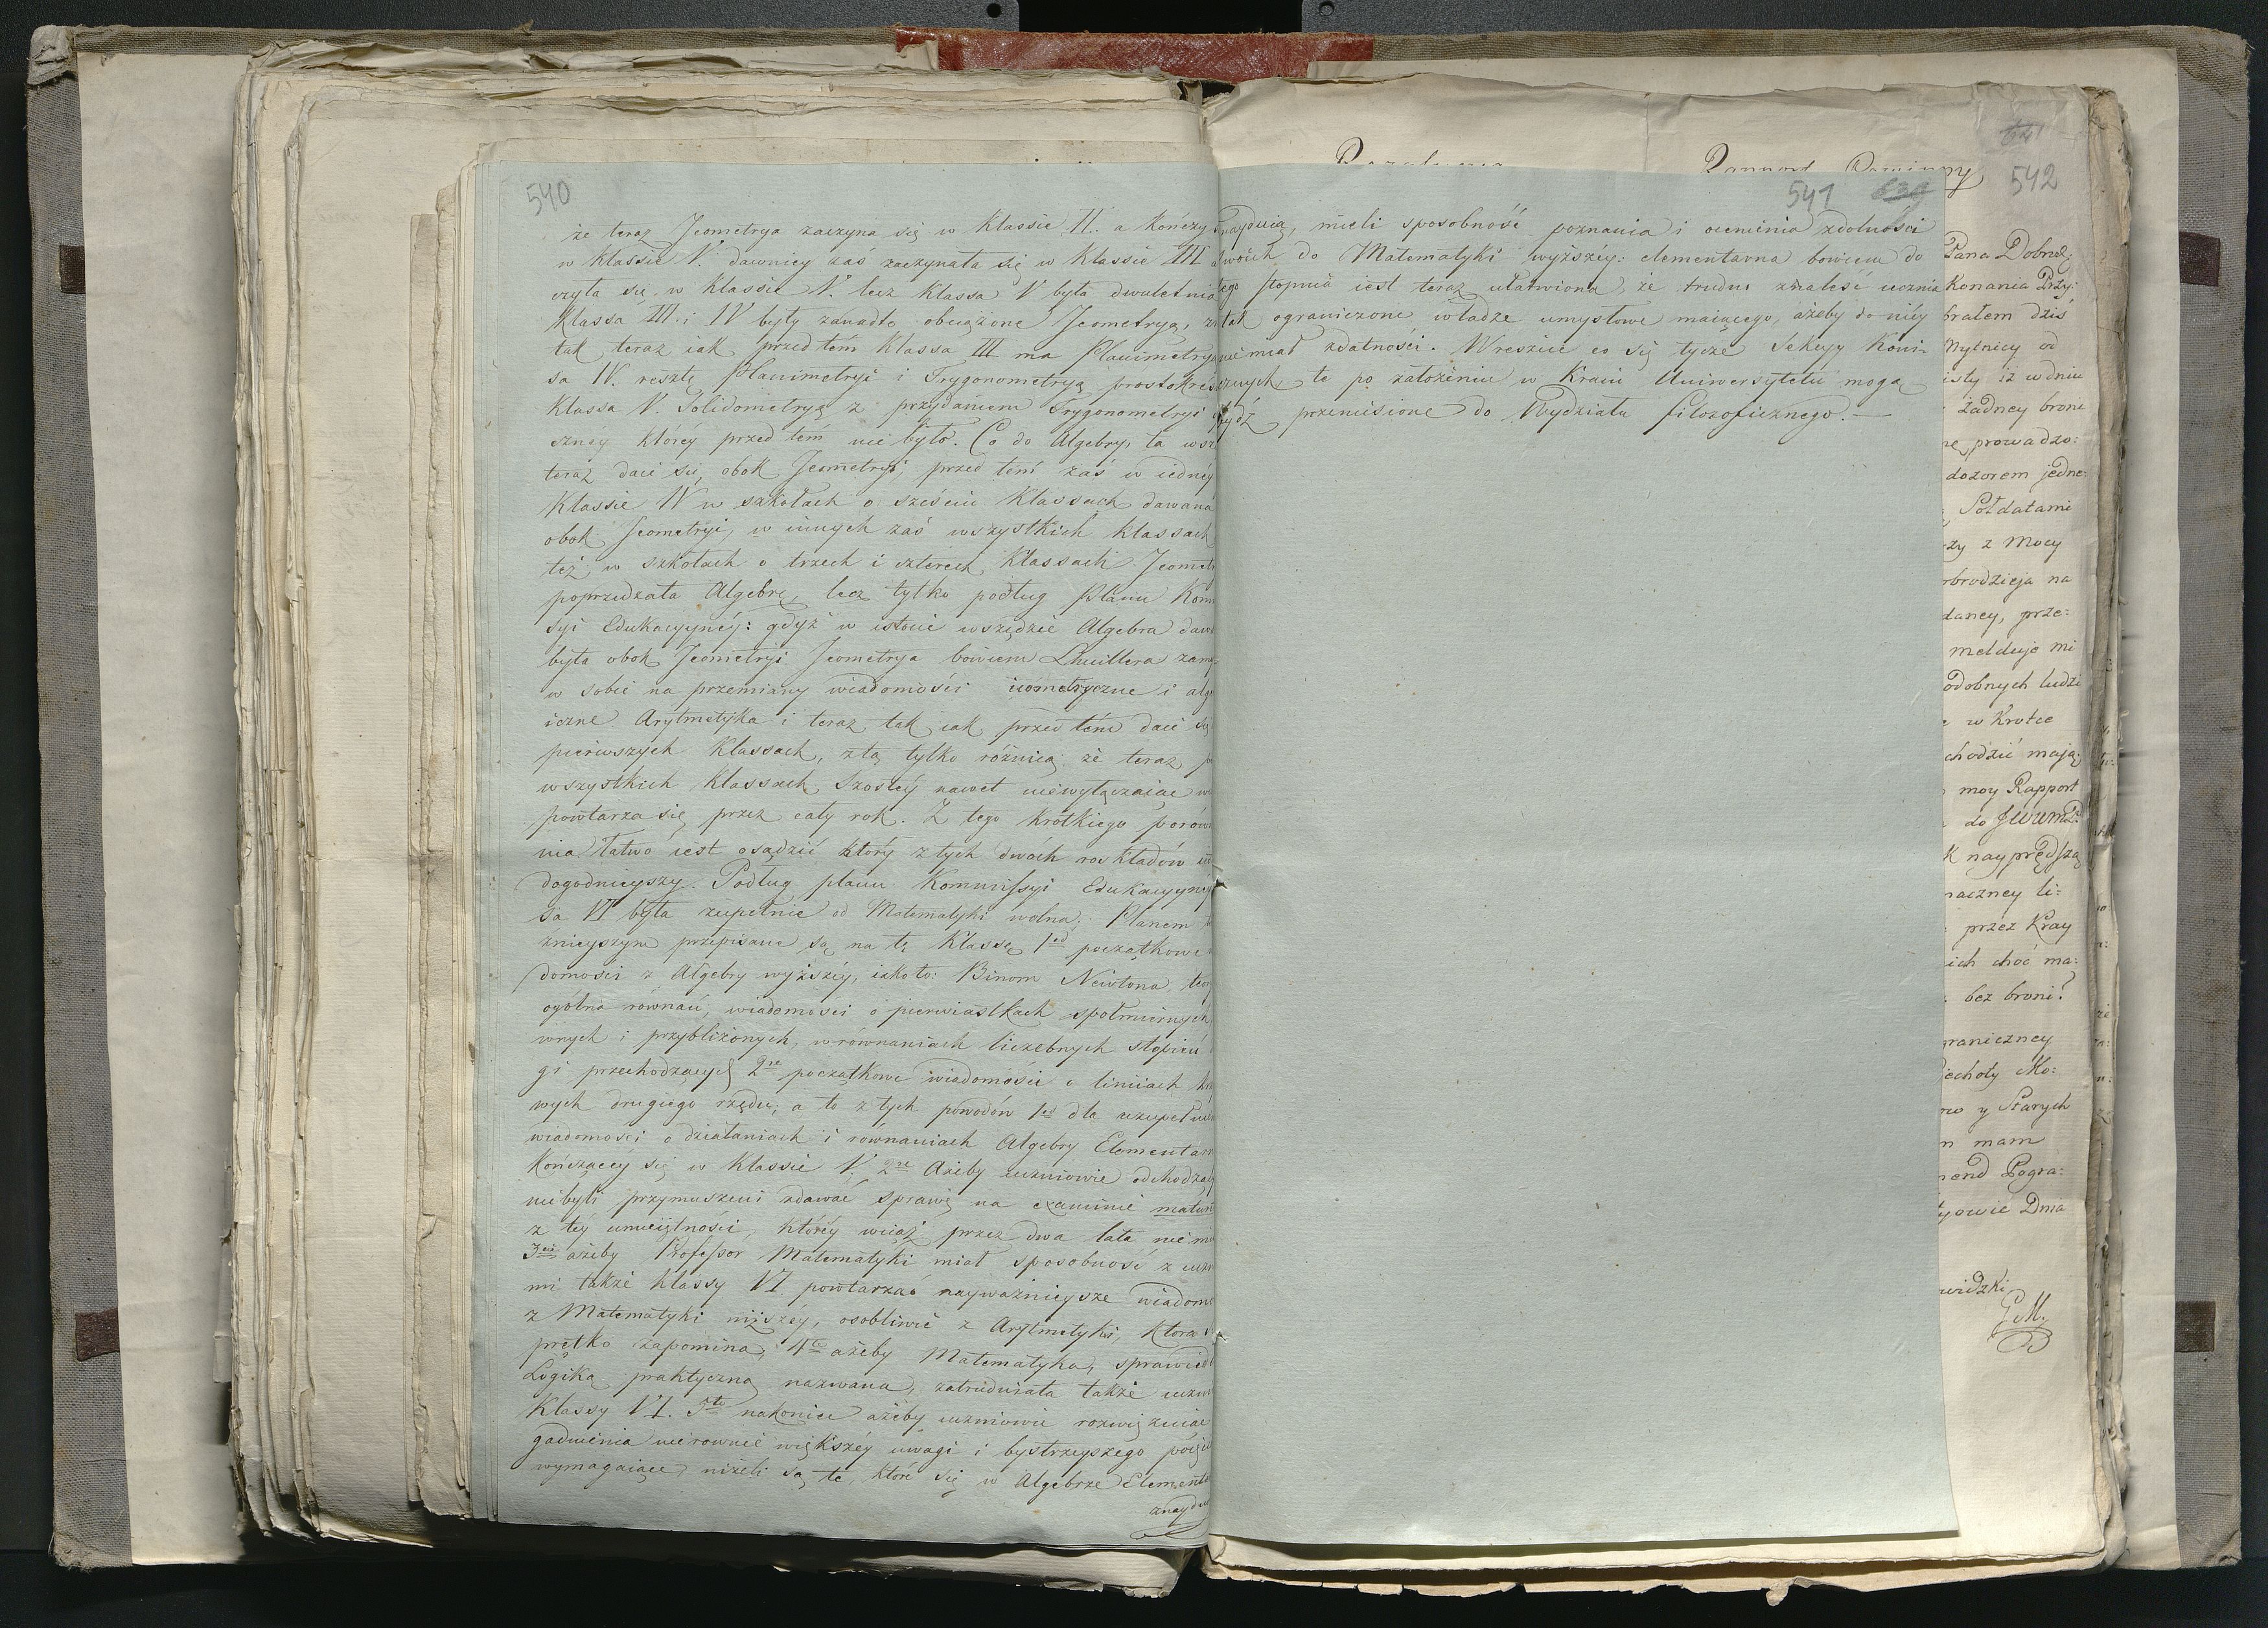 540
że teraz Jeometrya zaczyna się w Klassie II. a kończy
w Klassie V. dawniey zaś zaczynała się w Klassie III a
czyła się w Klassie V. lecz Klassa V była dwuletnia
Klassa III. i IV były zanadto obciążone Jeometryą, z
tak teraz iak przed tém Klassa III ma Planimetryą
sa IV. resztę Planimetryi i Trygonometryą prostokreś
Klassa V. Solidometryą z przydaniem Trygonometryi
cznéy któréy przed tém nie było. Co do Algebry, ta wsz
teraz daie się obok Jeometryi, przed tém zaś w iednéy
Klassie IV w szkołach o sześciu Klassach dawana
obok Jeometryi, w innych zaś wszystkich klassach
też w szkołach o trzech i czterech Klassach Jeomet
poprzedzała Algebrę, lecz tylko podług Planu Kom
syi Edukacyynéy: gdyż w istocie wszędzie Algebra daw
była obok Jeometryi Jeometrya bowiem Lhuillera zam
w sobie na przemiany wiadomości ieometryczne i alg
iczne. Arytmetyka i teraz tak iak przed tém daie się
pierwszych Klassach, z tą tylko różnicą że teraz p
wszystkich Klassach Szostéy nawet niewyłączaiąc w
powtarza się przez cały rok. Z tego krótkiego porów
nia łatwo iest osądzić który z tych dwóch roskładów ie
dogodnieyszy. Podług planu Kommissyi Edukacyyney
sa VI była zupełnie od Matematyki wolna; Planem t
znieyszym przepisane są na tę Klassę 1ød początkowe
domości z Algebry wyższéy, iakoto: Binom Newtona, teor
ogólna równań, wiadomości o pierwiastkach spółmiernych
wnych i przybliżonych, w równaniach liczebnych stopień
gi przechodzących 2re początkowe wiadomości o liniiach k
wych drugiego rzędu; a to z tych powodów 1ød dla uzupełnie
wiadomości o działaniach i równaniach Algebry Elementarn
Kończącéy się w Klassie V. 2re Ażeby uczniowie odchodząc
niebyli przymuszeni zdawać sprawę na examinie matur
z téy umieiętności, któréy wciąż przez dwa lata nie mi
3cie ażeby Professor Matematyki miał sposobność z uczn
mi także klassy VI powtarzać nayważnieysze wiadomo
z Matematyki niższéy, osobliwie z Arytmetyki, która s
prętko zapomina, 4te ażeby Matematyka, sprawiedl
Logiką praktyczną nazwana, zatrudniała także uczni
Klassy VI. 5te nakoniec ażeby uczniowie rozwiązuiąc
gadnienia nierównie większéy uwagi i bystrzeyszego poię
wymagaiące, niżeli są te, które się w Algebrze Elementa
znaydu
541
639
nayduią, mieli sposobność poznania i ocenienia zdolności
swoich do Matematyki wyższéy: elementarna bowiem do
tego stopnia iest teraz ułatwiona, że trudno znaleść ucznia
tak ograniczone władze umysłowe maiącego, ażeby do niéy
niemiał zdatności. Wreszcie co się tycze Sekcyy Koni-
cznych te po założeniu w Kraiu Uniwersytetu mogą
bydź przeniesione do Wydziału filozoficznego. —
641
542
Rapport
Pana Dobrod:
Konania Przy:
brałem dziś
Mytnicy od
isty iż w dniu
żadney broni
ne prowadzo:
dozorem jedne:
Sołdatami
ży z Mocy
obrodzieja na
daney, prze:
melduje mi
odobnych ludzi
w Krotce
chodzić mają:
moy Rapport
do JWWM
k nayprędszą
naczney li:
przez Kray
ich choć ma:
bez broni?
graniczney
iechoty Mo:
wo y Starych
m mam
mend Pogra:
tyowie Dnia
widzki
GM.